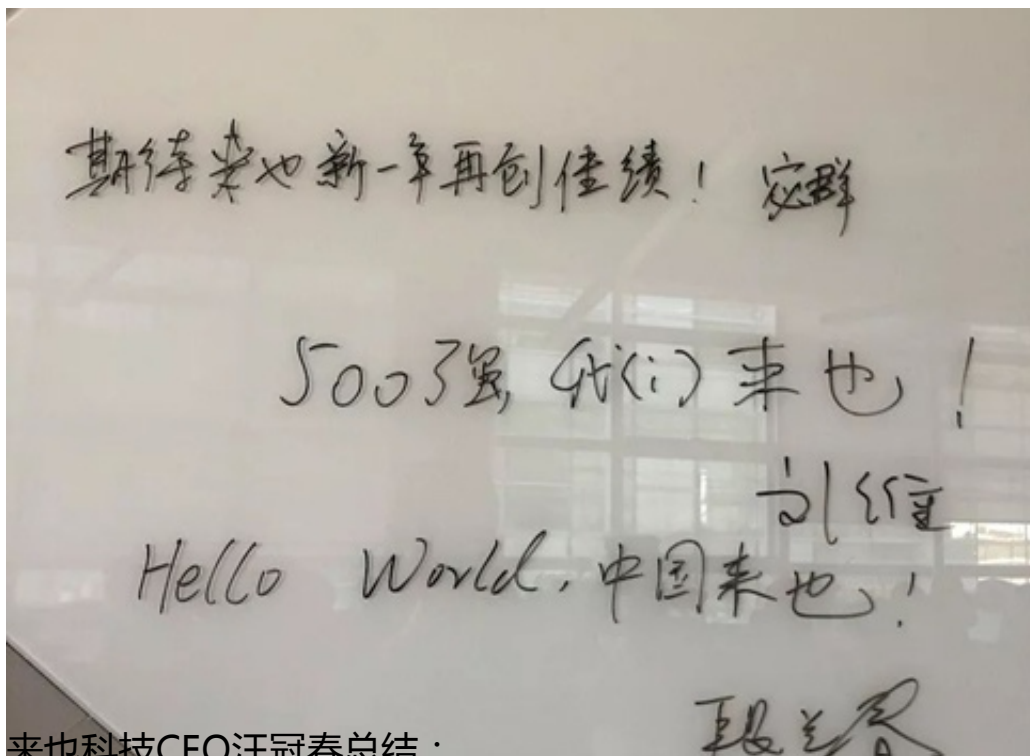 期待来也新一年再创佳绩! 宓群
500强, 我们来也!
刘维
Hello World, 中国来也!
段兰春
来也科技CEO汪冠春总结: